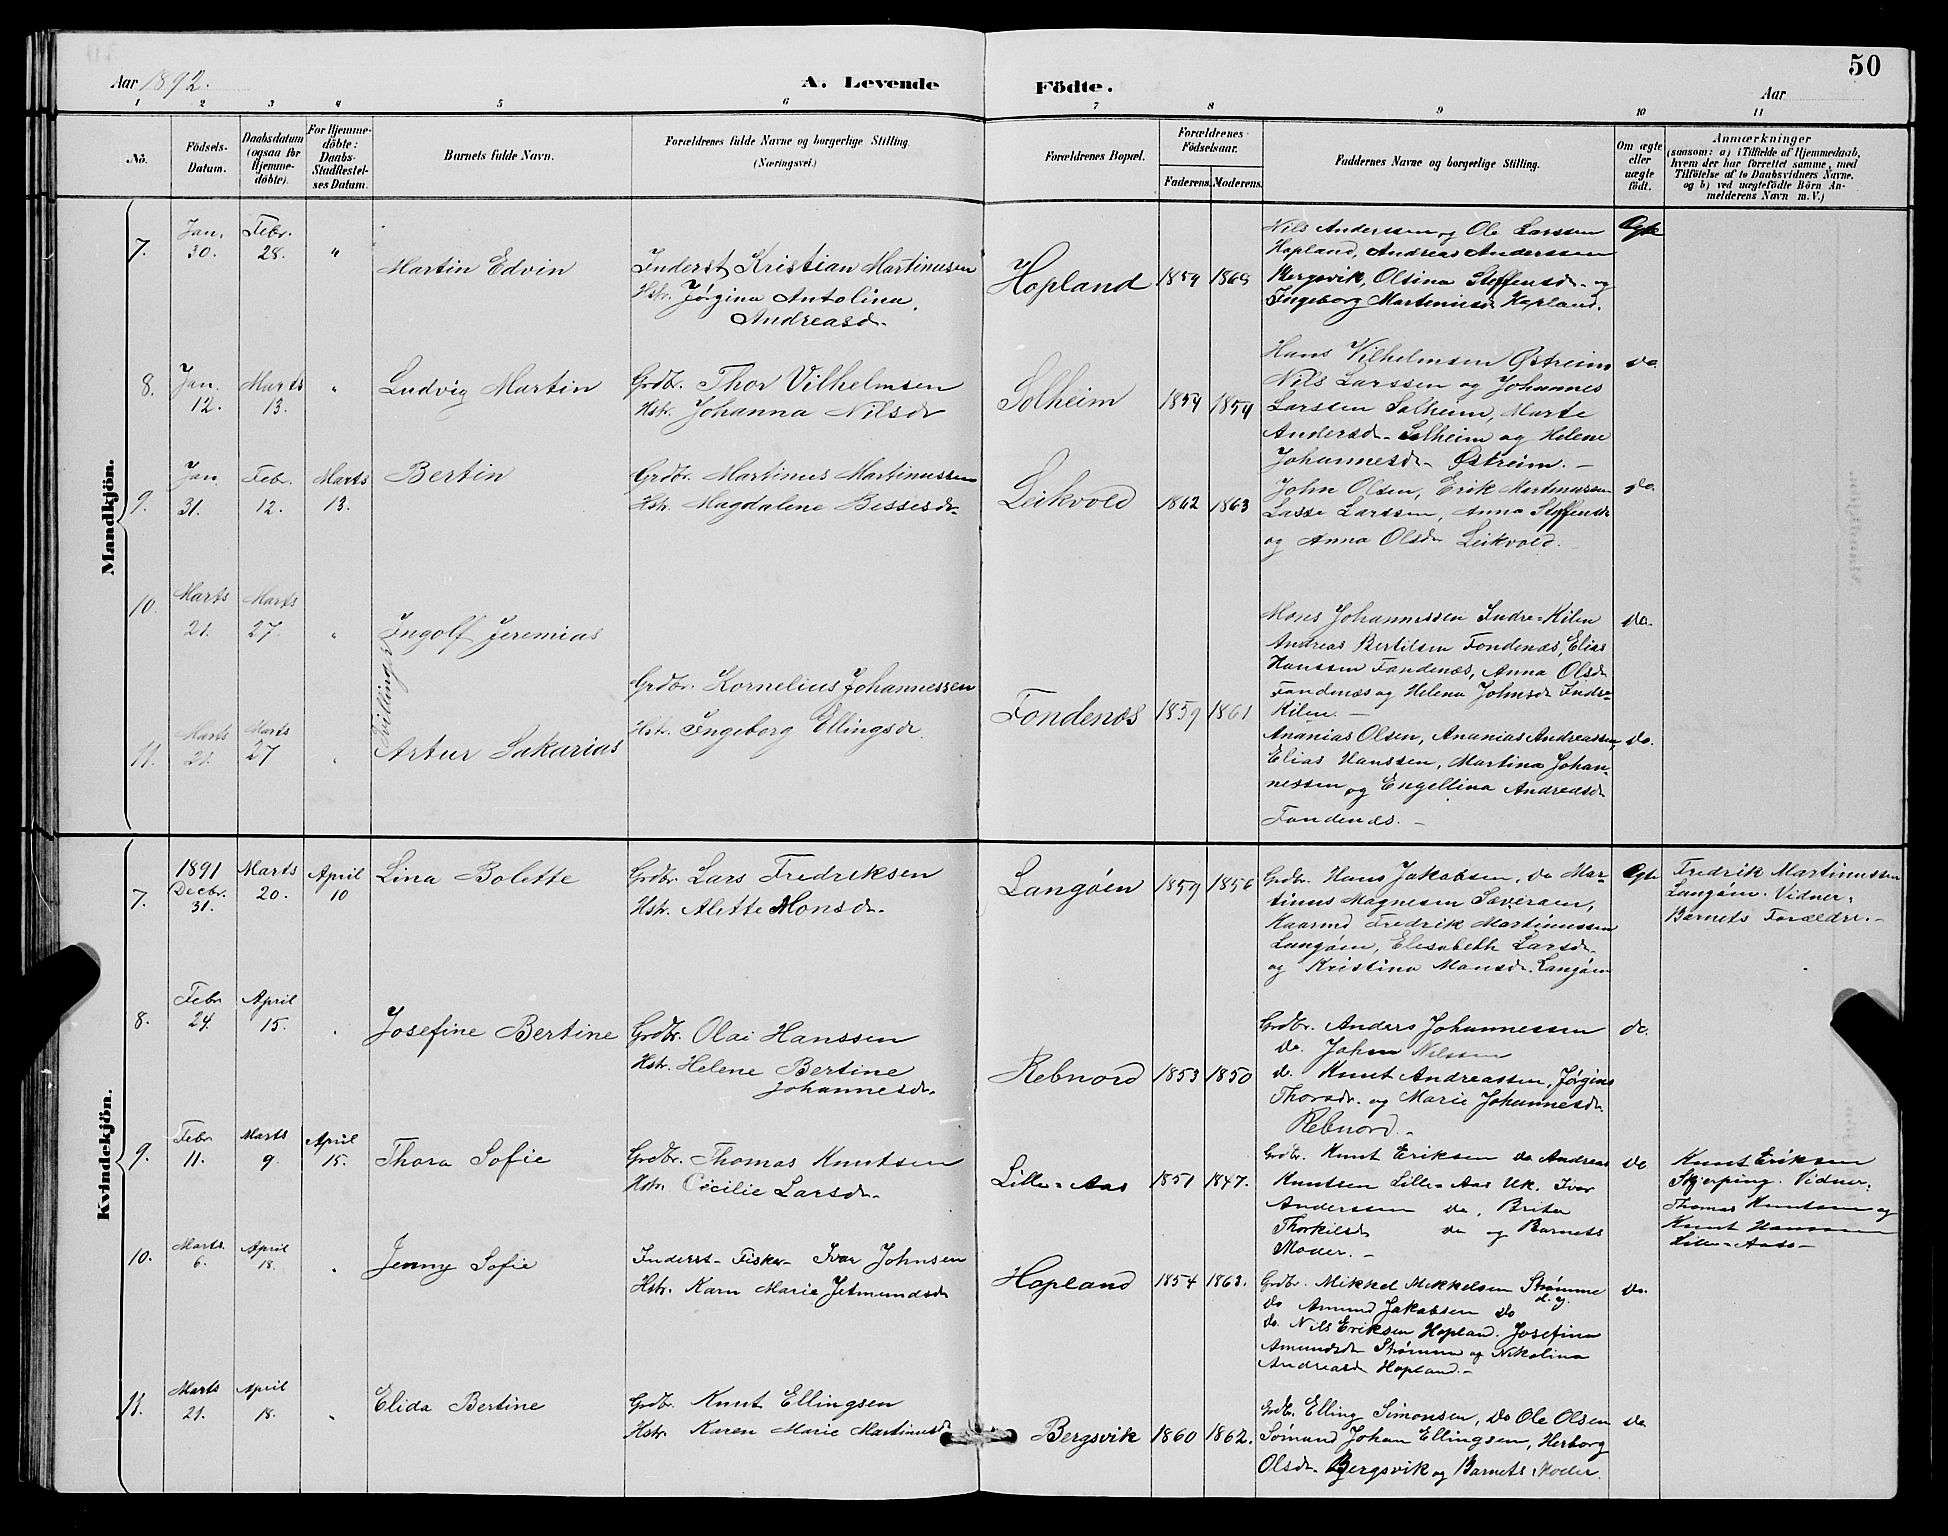 50
Aar 1892. A. Levende Födte. Aar
1 2 3 4 5 6 7 8 9 10 11
No.
Födsels-Datum.
Daabsdatum (ogsaa for Hjemme-döbte).
For Hjemme-döbte: Daabs-Stadfæstel-ses Datum.
Barnets fulde Navn.
Forældrenes fulde Navne og borgerlige Stilling.
(Næringsvei.)
Forældrenes Bopæl.
Forældrenes Födselsaar.
Faderens. Moderens.
Faddernes Navne og borgerlige Stilling.
Om ægte eller uægte födt.
Anmærkninger
(saasom: a) i Tilfælde af Hjemmedaab,
hvem der har forrettet samme, med
Tilföielse af to Daabsvidners Navne,
og b) ved uægtefödte Börn An-
melderens Navn m. V.)
Mandkjön.
7. Jan. 30. Febr. 28. "
Martin Edvin
Inderst Kristian Martinusen
Hstr. Jørgina Antolina
Andreasd.
Hopland 1859 1865
Nils Anderssen og Ole Larssen
Hopland, Andreas Anderssen
Bergsvik, Olsina Steffensd. og
Ingeborg Martinusd. Hopland.
Ægte
8. Jan. 12. Marts 13. "
Ludvig Martin
Grdbr. Thor Vilhelmsen
Hstr. Johanna Nilsd.
Solheim 1854 1854
Hans Vilhelmsen Østreim
Nils Larssen og Johannes
Larssen Solheim, Marte
Andersd. Solheim og Helene
Johannesd. Østreim. -
do.
9. Jan. 31. Febr. 12. Marts 13.
Bertin
Grdbr. Martinus Martinussen
Hstr. Magdalene Bessesd.
Leikvold 1862 1863
John Olsen, Erik Martinusen
Lasse Larssen, Anna Steffensd.
og Anna Olsd. Leikvold.
do.
10. Marts 21. Marts 27. "
Ingolf Jeremias
Tvillinger
Grdbr. Kornelius Johannessen
Hstr. Ingeborg Ellingsd.
Fondenæs 1859 1861
Mons Johannessen Indre-Kilen
Andreas Bertilsen Fondenæs, Elias
Hanssen Fondenæs, Anna Olsd.
Fondenæs og Helena Johnsd. Indre-
Kilen. -
do.
11. Marts 21. Marts 27 "
Artur Sakarias
Ananias Olsen, Ananias Andreassen,
Elias Hanssen, Martina Johan-
nessen og Engellina Andreasd.
Fondenæs. -
do.
Kvindekjön.
7. 1891 Decbr. 31. Marts 20. April 10
Lina Bolette
Grdbr. Lars Fredriksen
Hstr. Alette Monsd.
Langøen 1859 1856
Grdbr. Hans Jakobsen, do Mar-
tinus Magnesen Sæveraen,
Kaarmd Fredrik Martinussen
Langøen, Elisabeth Larsd.
og Kristina Monsd. Langøen
Ægte
Fredrik Martinussen
Langøen. Vidner:
Barnets Forældre. -
8. Febr 24. April 15. "
Josefine Bertine
Grdbr. Olai Hanssen
Hstr. Helene Bertine
Johannesd.
Rebnord 1853 1850
Grdbr. Anders Johannessen
do. Johan Nilssen
do. Knut Andreassen, Jørgina
Thorsd. og Marie Johannesd.
Rebnord. -
do.
9. Febr 11. Marts 9. April 15.
Thora Sofie
Grdbr. Thomas Knutsen
Hstr. Cecilie Larsd.
Lille-Aas 1851 1847.
Grdbr. Knut Eriksen do Andreas
Knutsen Lille-Aas Uk. Ivar
Anderssen do, Brita
Thorkilsd. do og Barnets
Moder. -
do
Knut Eriksen
Skjerping. Vidner:
Thomas Knutsen og
Knut Hanssen
Lille-Aas -
10. Marts 6. April 18. "
Jenny Sofie
Inderst-Fisker Ivar Johnsen
Hstr. Karn Marie Jetmundsd.
Hopland 1854 1863.
Grdbr. Mikkel Mikkelsen Strømme
do Amund Jakobsen do d. y.
do. Nils Eriksen Hopland. Josefina
Amundsd. Strømme og Nikolina
Andreasd. Hopland. -
do.
11. Marts 21. April 18. "
Elida Bertine
Grdbr. Knut Ellingsen
Hstr. Karen Marie Martinusd.
Bergsvik 1860 1862.
Grdbr. Elling Simonsen, do Ole Olsen
Sømand Johan Ellingsen, Herborg
Olsd. Bergsvik og Barnets Moder.
do